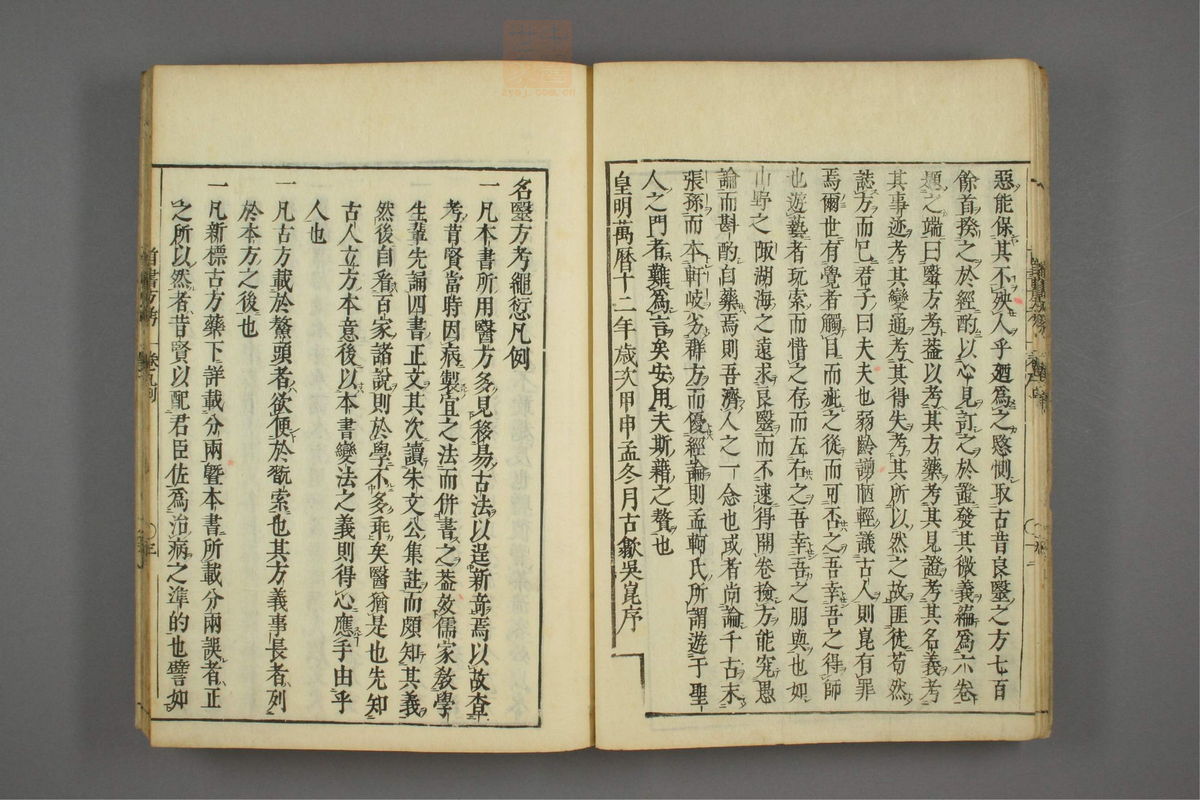 惡能保其不殃人乎廼爲之愍惻取古昔良醫之方七百
餘首揆之於經酌以心見訂之於證發其微義編爲六卷
題之端曰醫方考葢以考其方藥考其見證考其名義考
其事迹考其變通考其得失考其所以然之故匪徒苟然
誌方而已君子曰夫夫也弱齡謭陋輕議古人則崑有罪
焉爾世有覺者觸目而疵之從而可否之吾幸吾之得師
也遊藝者玩索而惜之存而左右之吾幸吾之朋與也如
山野之陬湖海之遠求良醫而不速得開卷撿方能究愚
論而斟酌自藥焉則吾濟人之一念也或者尚論千古末
張孫而本軒岐劣群方而優經論則孟軻氏所謂遊于聖
人之門者難爲言矣安用夫斯藉之贅也
皇明萬曆十二年歲次甲申孟冬月古歙吳崑序
名醫方考繩愆凡例
一凡本書所用醫方多見移易古法以逞新竒焉以故查
考昔賢當時因病製宜之法而併書之葢效儒家敎學
生輩先論四書正文其次讀朱文公集註而頗知其義
然後自看百家諸說則於學不多乖矣醫猶是也先知
古人立方本意後以本書變法之義則得心應手由乎
人也
一凡古方載於鰲頭者欲便於翫索也其方義事長者列
於本方之後也
一凡新標古方藥下詳載分兩曁本書所載分兩誤者正
之所以然者昔賢以配君臣佐爲治病之準的也譬如